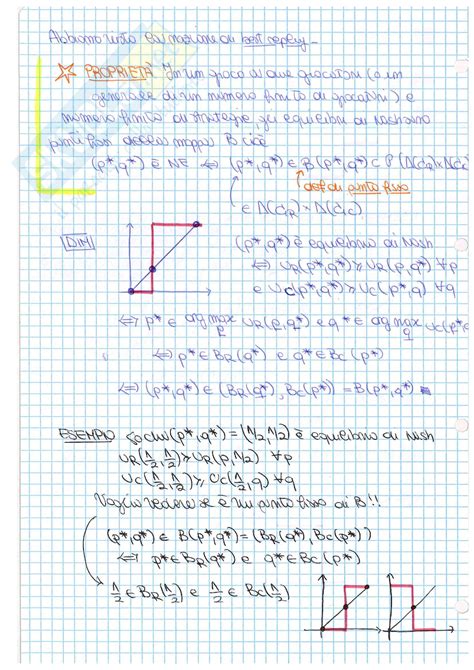 Abbiamo visto la nozione di best reply –
PROPRIETÀ In un gioco a due giocatori (o in
generale di un numero finito di giocatori) e
numero finito di strategie, gli equilibri di Nash sono
punti fissi della mappa B cioè
(p*,q*) è NE ⇔ (p*,q*) ∈ B(p*,q*) ⊂ P(Δ(C_R)×Δ(C_C))
def di punto fisso
∈ Δ(C_R)×Δ(C_C)
DIM
(p*,q*) è equilibrio di Nash
⇔ U_R(p*,q*) ≥ U_R(p,q*) ∀p
e U_C(p*,q*) ≥ U_C(p*,q) ∀q
⇔ p* ∈ arg max_p U_R(p,q*) e q* ∈ arg max_q U_C(p*
⇔ p* ∈ B_R(q*) e q* ∈ B_C(p*)
⇔ (p*,q*) ∈ (B_R(q*), B_C(p*)) = B(p*,q*)
ESEMPIO (p*,q*) = (1/2,1/2) è equilibrio di Nash
U_R(1/2,1/2) ≥ U_R(p,1/2) ∀p
U_C(1/2,1/2) ≥ U_C(1/2,q) ∀q
Voglio vedere se è un punto fisso di B!!
(p*,q*) ∈ B(p*,q*) = (B_R(q*), B_C(p*))
⇔ p* ∈ B_R(q*) e q* ∈ B_C(p*)
1/2 ∈ B_R(1/2) e 1/2 ∈ B_C(1/2)